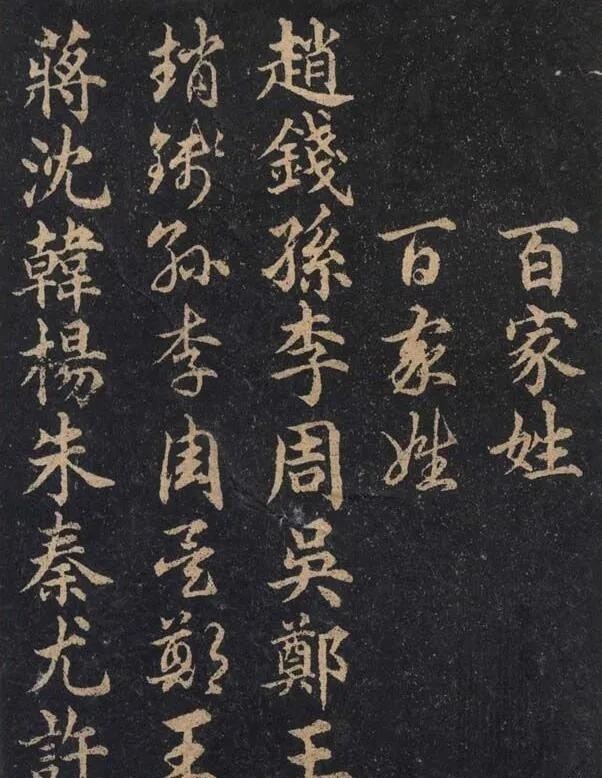 百家姓
百家姓
趙錢孫李周吳鄭王
趙錢孫李周吳鄭王
蔣沈韓楊朱秦尤許